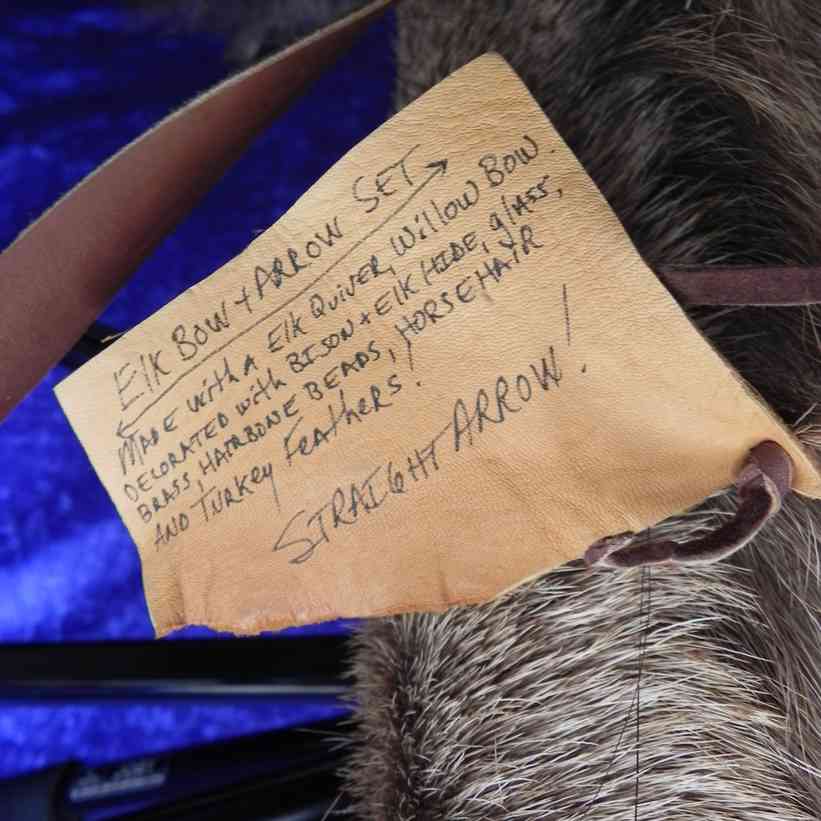 Elk Bow + Arrow Set
Made with a Elk Quiver, Willow Bow.
Decorated with Bison + Elk Hide, glass,
Brass, Hairbone Beads, Horsehair
and Turkey Feathers!
Straight Arrow!